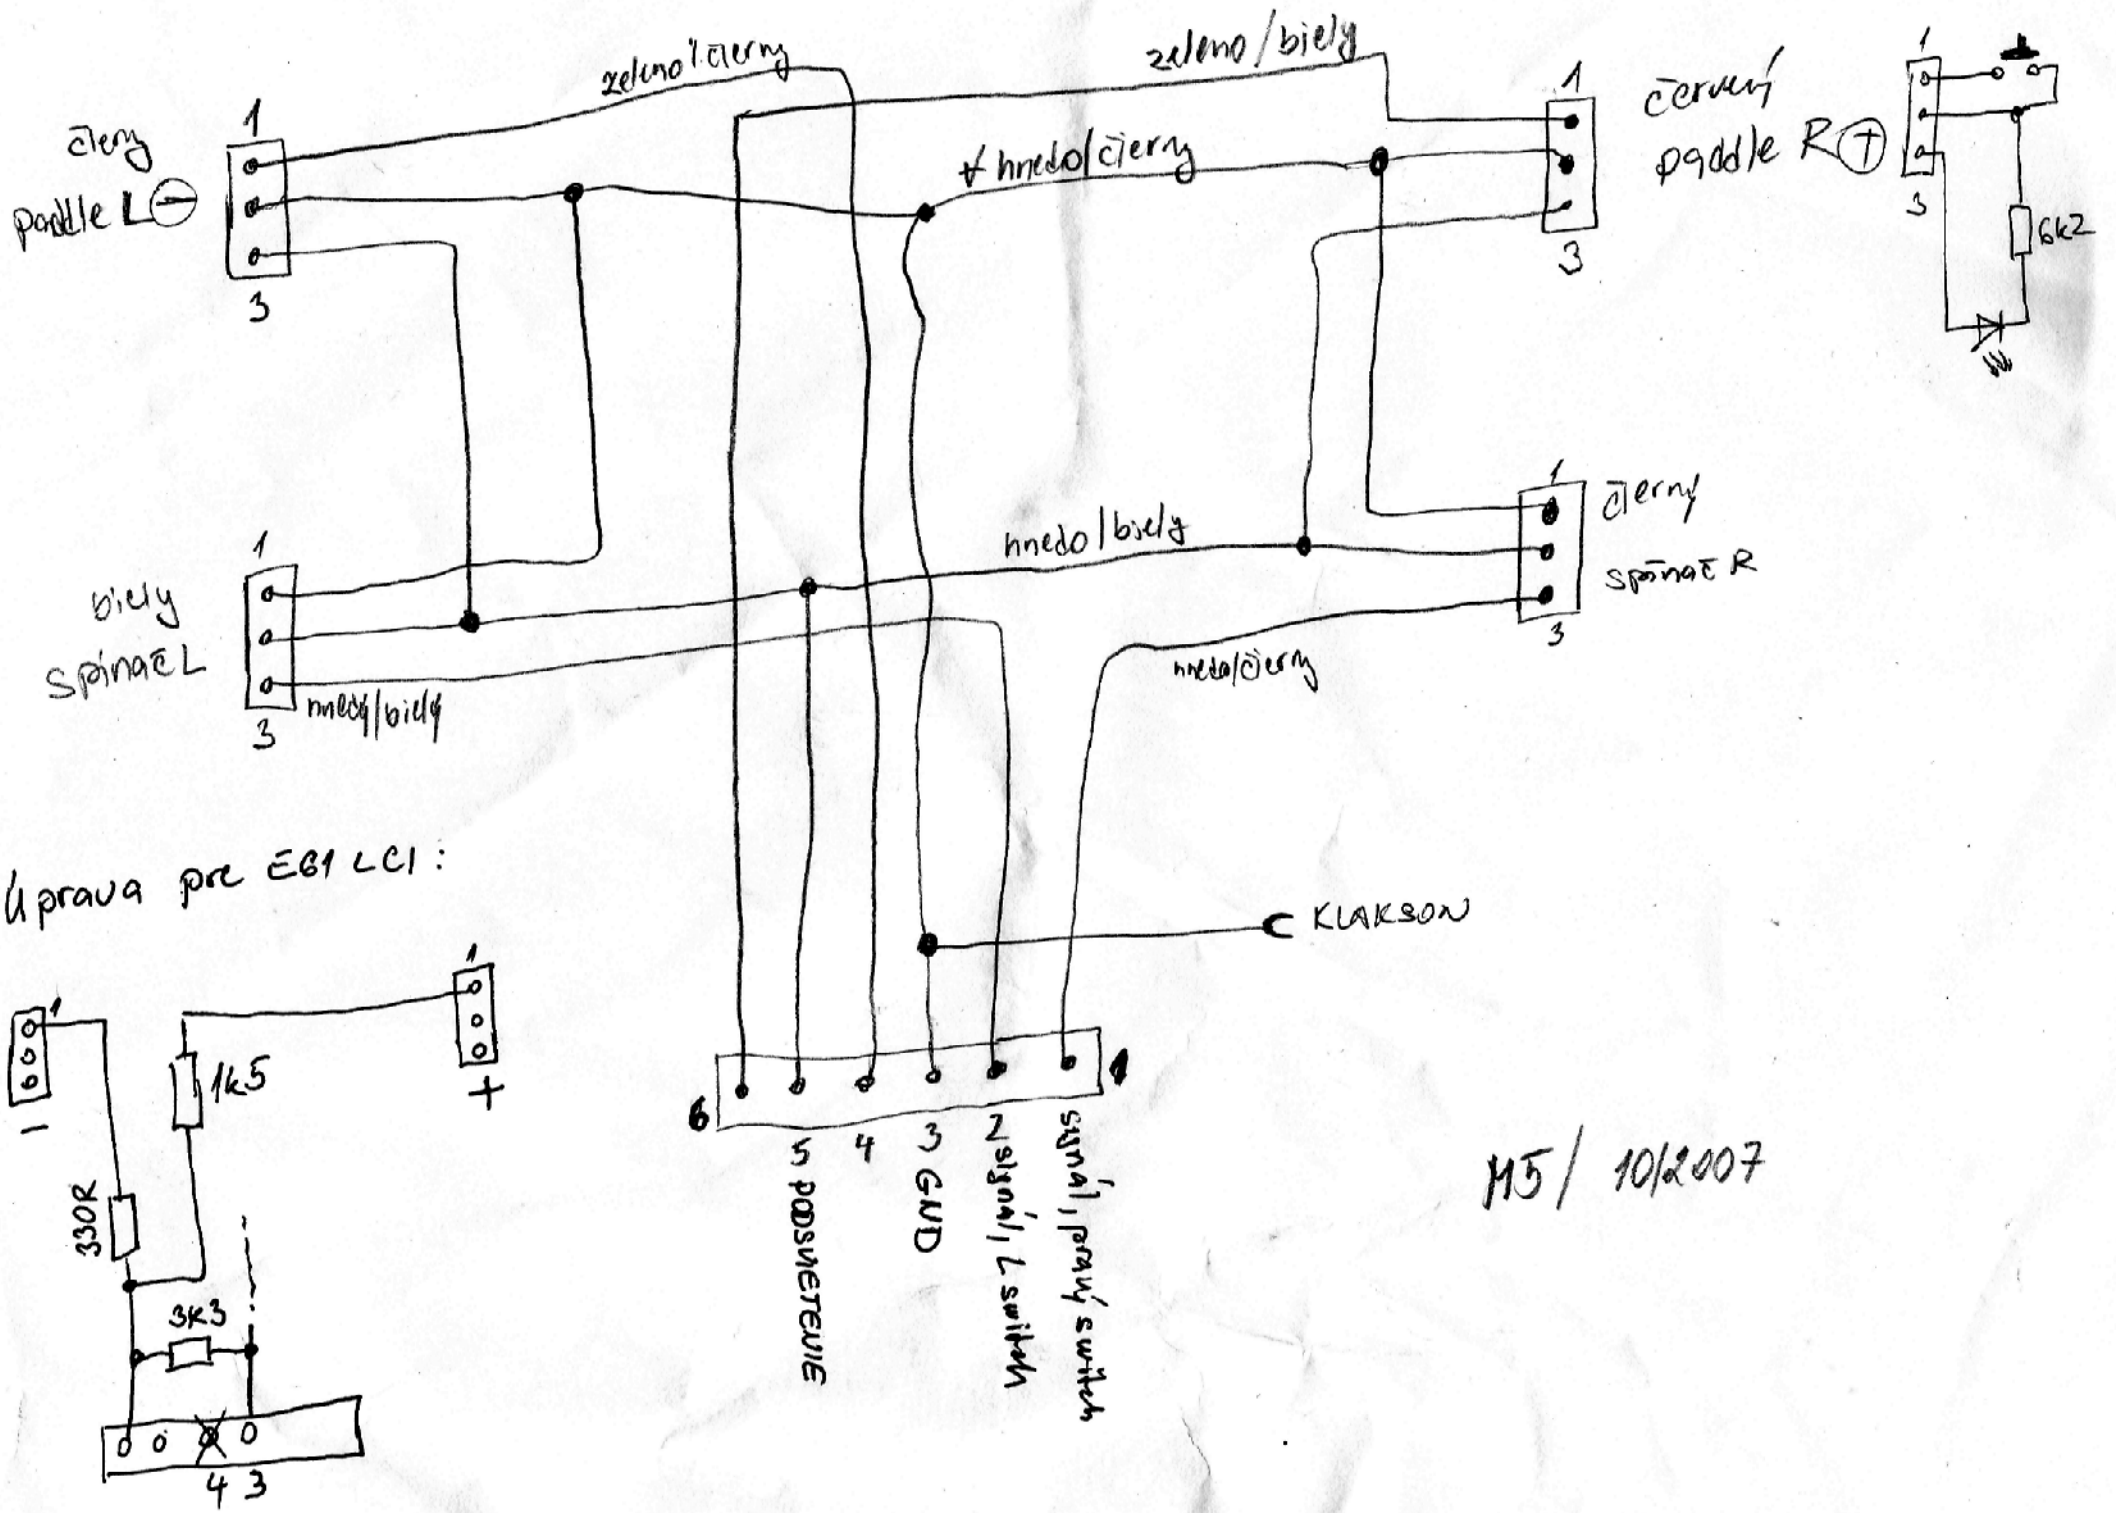 zeleno/čierny
zeleno/biely
1
čierny
paddle L ⊖
3
hnedo/čierny
1
3
červený
paddle R ⊕
1
3
6k2
1
biely
spínač L
3
hnedý/biely
hnedo/biely
1
čierny
spínač R
3
hnedo/čierny
Úprava pre E61 LCI:
KLAKSON
1
–
1
+
1k5
330R
3k3
4 3
6
1
5 PODSVIETENIE
4
3 GND
2 signál, L switch
signál, pravý switch
M5/ 10/2007